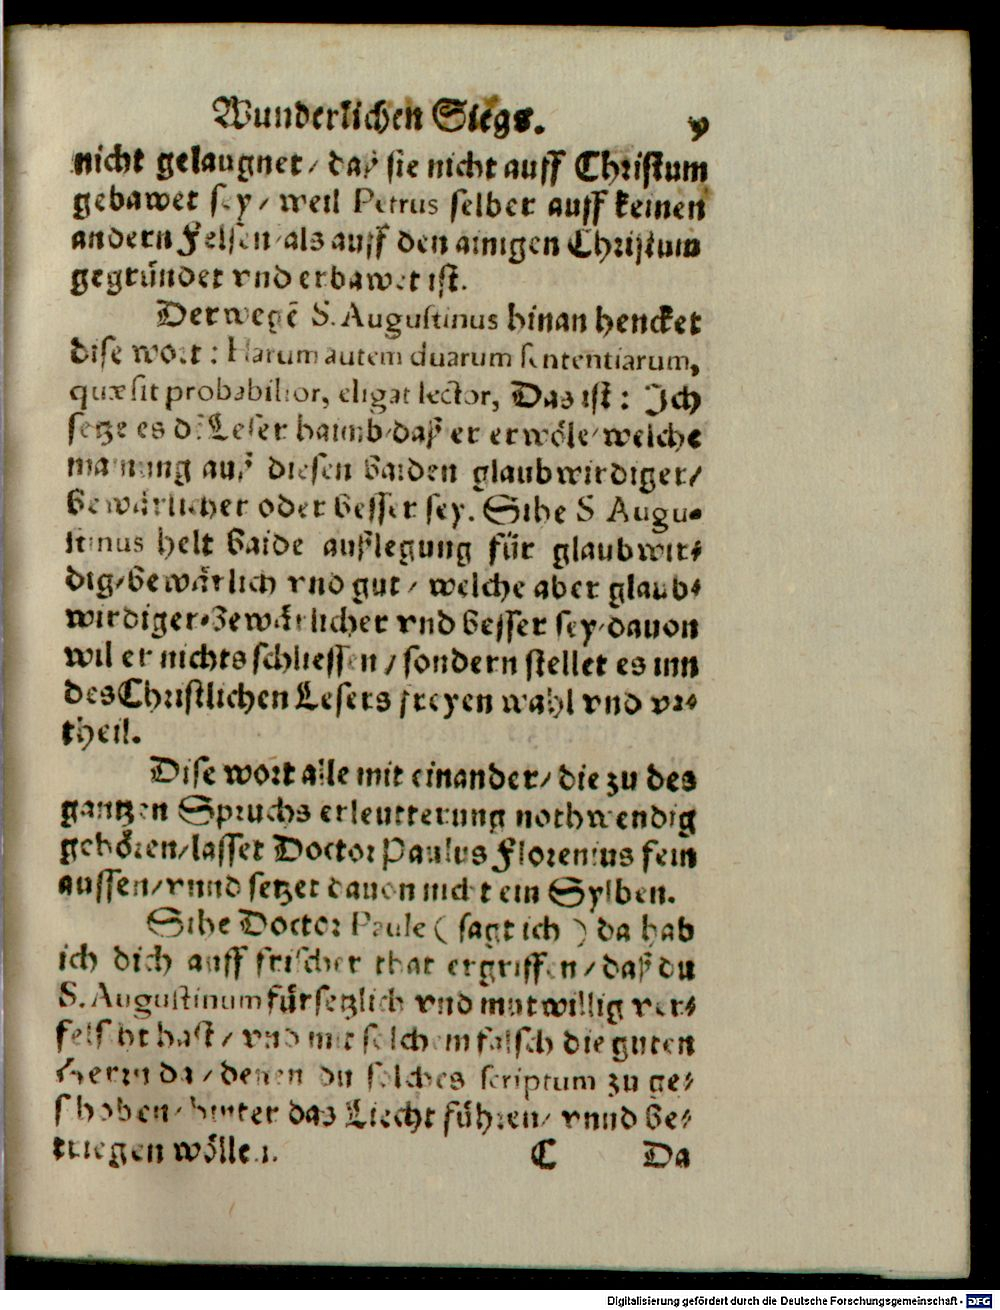 Wunderlichen Siegs. 9
nicht gelaugnet / daß sie nicht auff Christum
gebawet sey / weil Petrus selber auff keinen
andern Felsen / als auff den ainigen Christum
gegründet vnd erbawet ist.
Derwegē S. Augustinus hinan hencket
dise wort : Harum autem duarum sententiarum,
quæ sit probabilior, eligat lector, Das ist : Ich
setze es dē Leser haimb / daß er erwöle / welche
mainung auß diesen baiden glaubwirdiger /
bewärlicher oder besser sey. Sihe S Augu-
stinus helt baide außlegung für glaubwir-
dig / bewärlich vnd gut / welche aber glaub-
wirdiger / bewärlicher vnd besser sey / dauon
wil er nichts schliessen / sondern stellet es inn
des Christlichen Lesers freyen wahl vnd vr-
theil.
Dise wort alle mit einander / die zu des
gantzen Spruchs erleutterung nothwendig
gehören / lasset Doctor Paulus Florenius fein
aussen / vnnd setzet dauon nicht ein Sylben.
Sihe Doctor Paule ( sagt ich ) da hab
ich dich auff frischer that ergriffen / daß du
S. Augustinum fürsetzlich vnd mutwillig ver-
felscht hast / vnd mit solchem falsch die guten
Herrn da / denen du solches scriptum zu ge-
schoben / hinter das Liecht führen / vnnd be-
triegen wöllen.
C Da
Digitalisierung gefördert durch die Deutsche Forschungsgemeinschaft - DFG